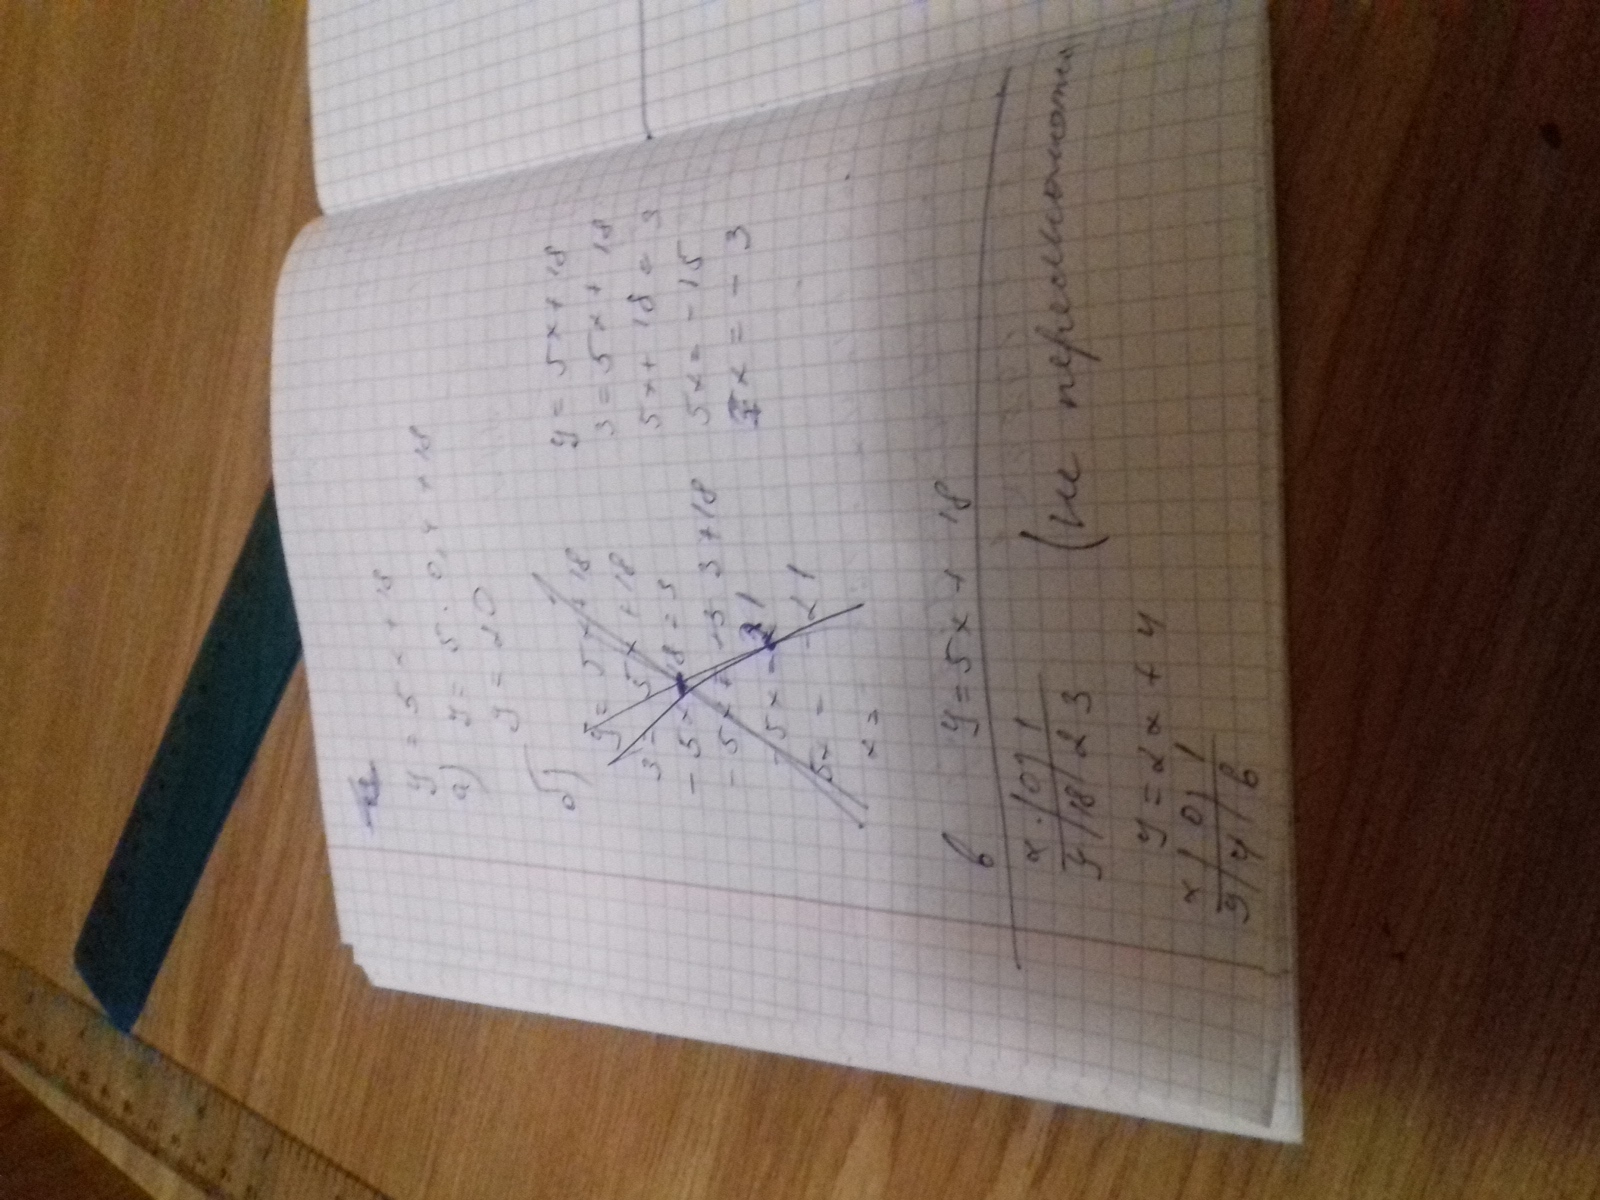 y = 5x + 18
а) y = 5 · 0,4 + 18
y = 20
б) y = 5x + 18
3 = 5x + 18
- 5x + 18 = 3
- 5x = -3 + 18
- 5x = 21
5x = - 21
x =
y = 5x + 18
3 = 5x + 18
5x + 18 = 3
5x = - 15
x = - 3
в y = 5x + 18
x | 0 | 1
y | 18 | 23
y = 2x + 4
x | 0 | 1
y | 4 | 6
(не